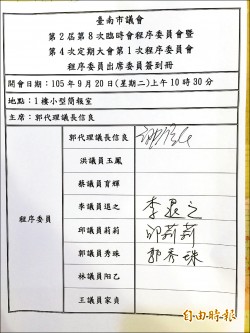 臺南市議會
第2屆第8次臨時會程序委員會暨
第4次定期大會第1次程序委員會
程序委員出席委員簽到冊
開會日期：105年9月20日(星期二)上午10時30分
地點：1樓小型簡報室
主席：郭代理議長信良
程序委員
郭代理議長信良
洪議員玉鳳
蔡議員育輝
李議員退之 李退之
邱議員莉莉 邱莉莉
郭議員秀珠 郭秀珠
林議員阳乙
王議員家貞
自由時報